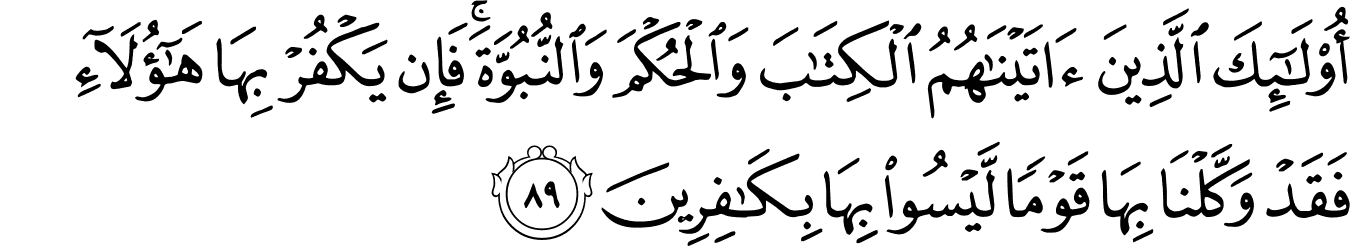 أُو۟لَـٰٓئِكَ ٱلَّذِينَ ءَاتَيْنَـٰهُمُ ٱلْكِتَـٰبَ وَٱلْحُكْمَ وَٱلنُّبُوَّةَ ۚ فَإِن يَكْفُرْ بِهَا هَـٰٓؤُلَآءِ
فَقَدْ وَكَّلْنَا بِهَا قَوْمًا لَّيْسُوا۟ بِهَا بِكَـٰفِرِينَ ٨٩